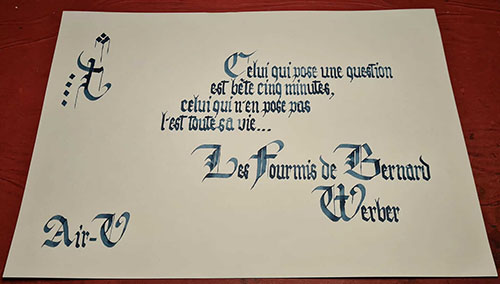 Celui qui pose une question
est bête cinq minutes,
celui qui n'en pose pas
l'est toute sa vie...
Les Fourmis de Bernard
Werber
Air-V